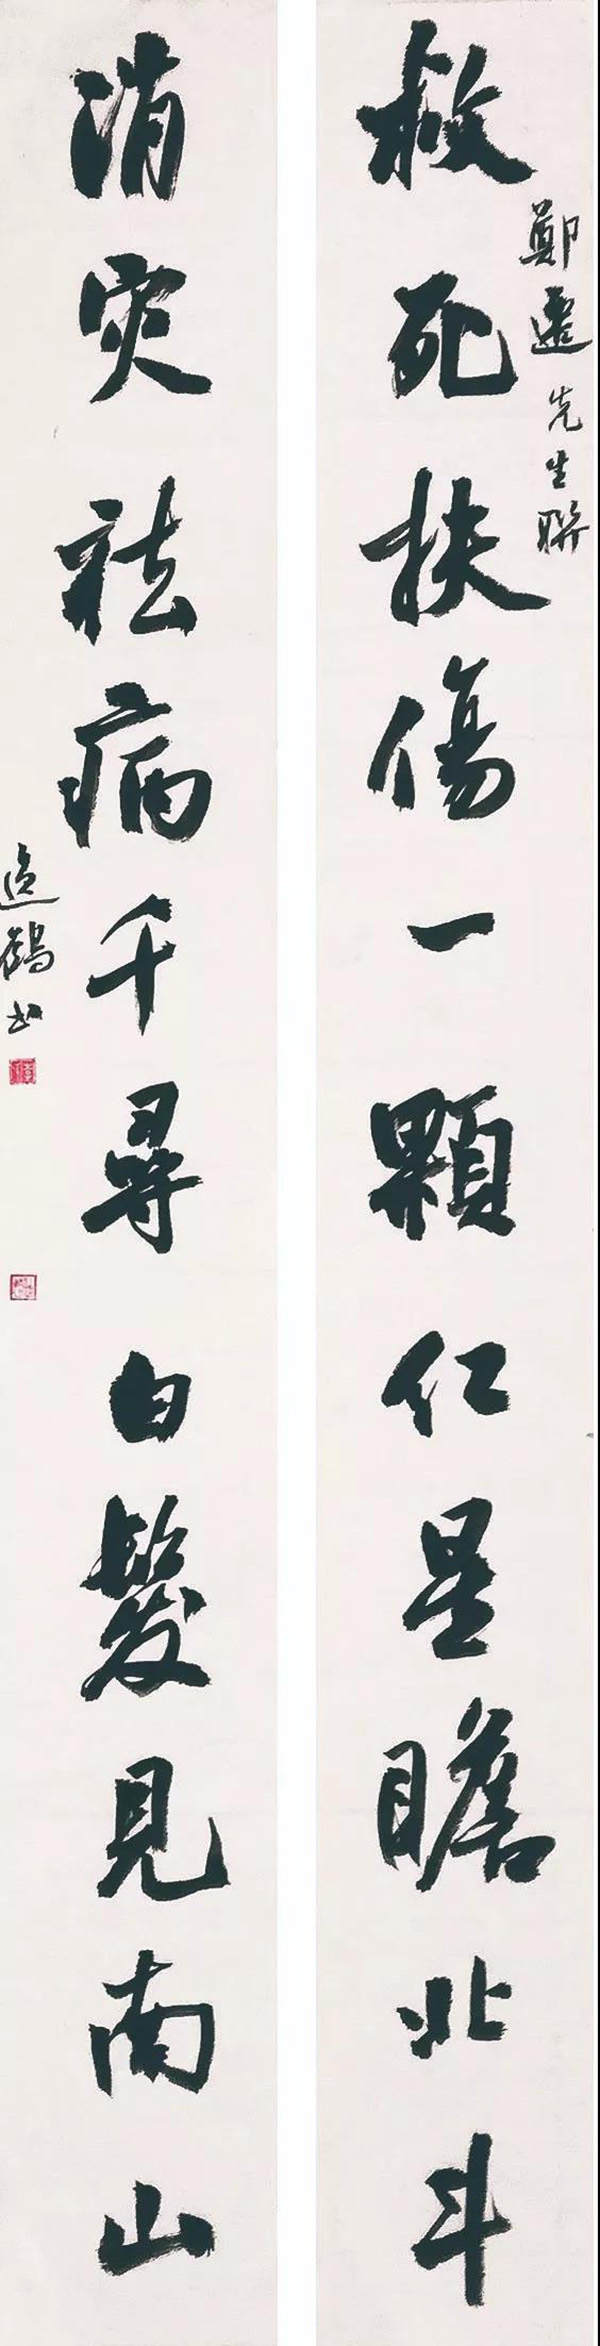 救死扶傷一顆仁星瞻北斗
鄭遷先生聯
消灾祛病千尋白髮見南山
追鶴書